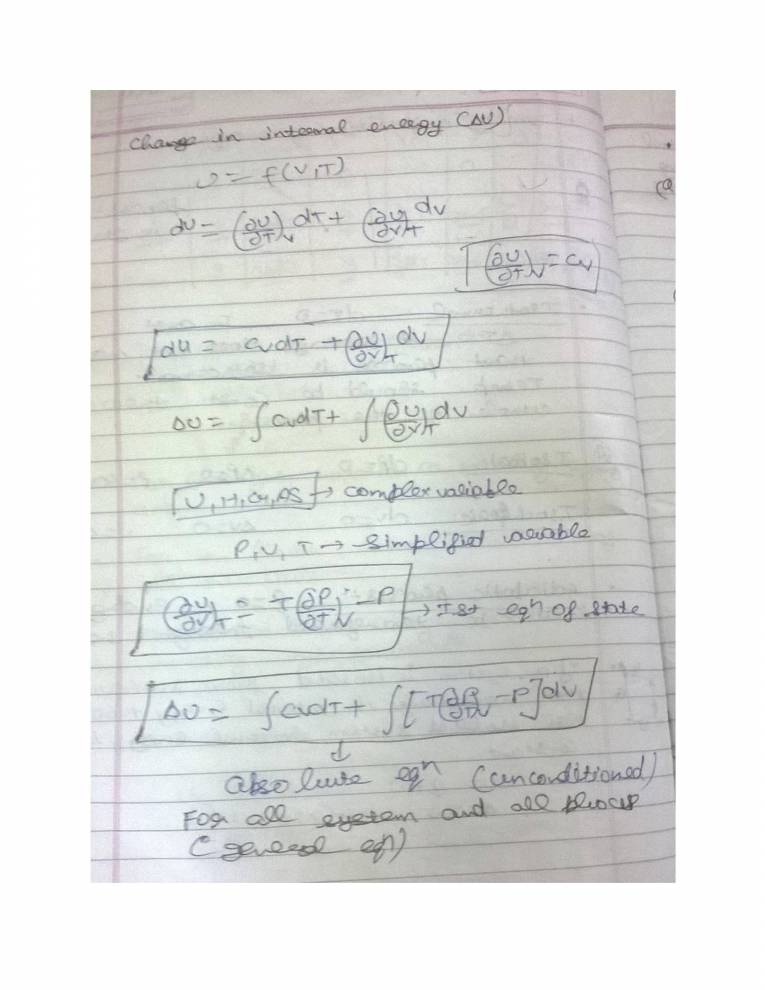 Change in internal energy (ΔU)
U = f(V,T)
dU = (∂U/∂T)_V dT + (∂U/∂V)_T dV
(∂U/∂T)_V = Cv
dU = CvdT + (∂U/∂V)_T dV
ΔU = ∫CvdT + ∫(∂U/∂V)_T dV
U, H, G, A, S → complex variable
P, V, T → Simplified variable
(∂U/∂V)_T = T(∂P/∂T)_V - P → Ist eqn of state
ΔU = ∫CvdT + ∫[T(∂P/∂T)_V - P]dV
↓
absolute eqn (unconditioned)
For all system and all process
(general eqn)